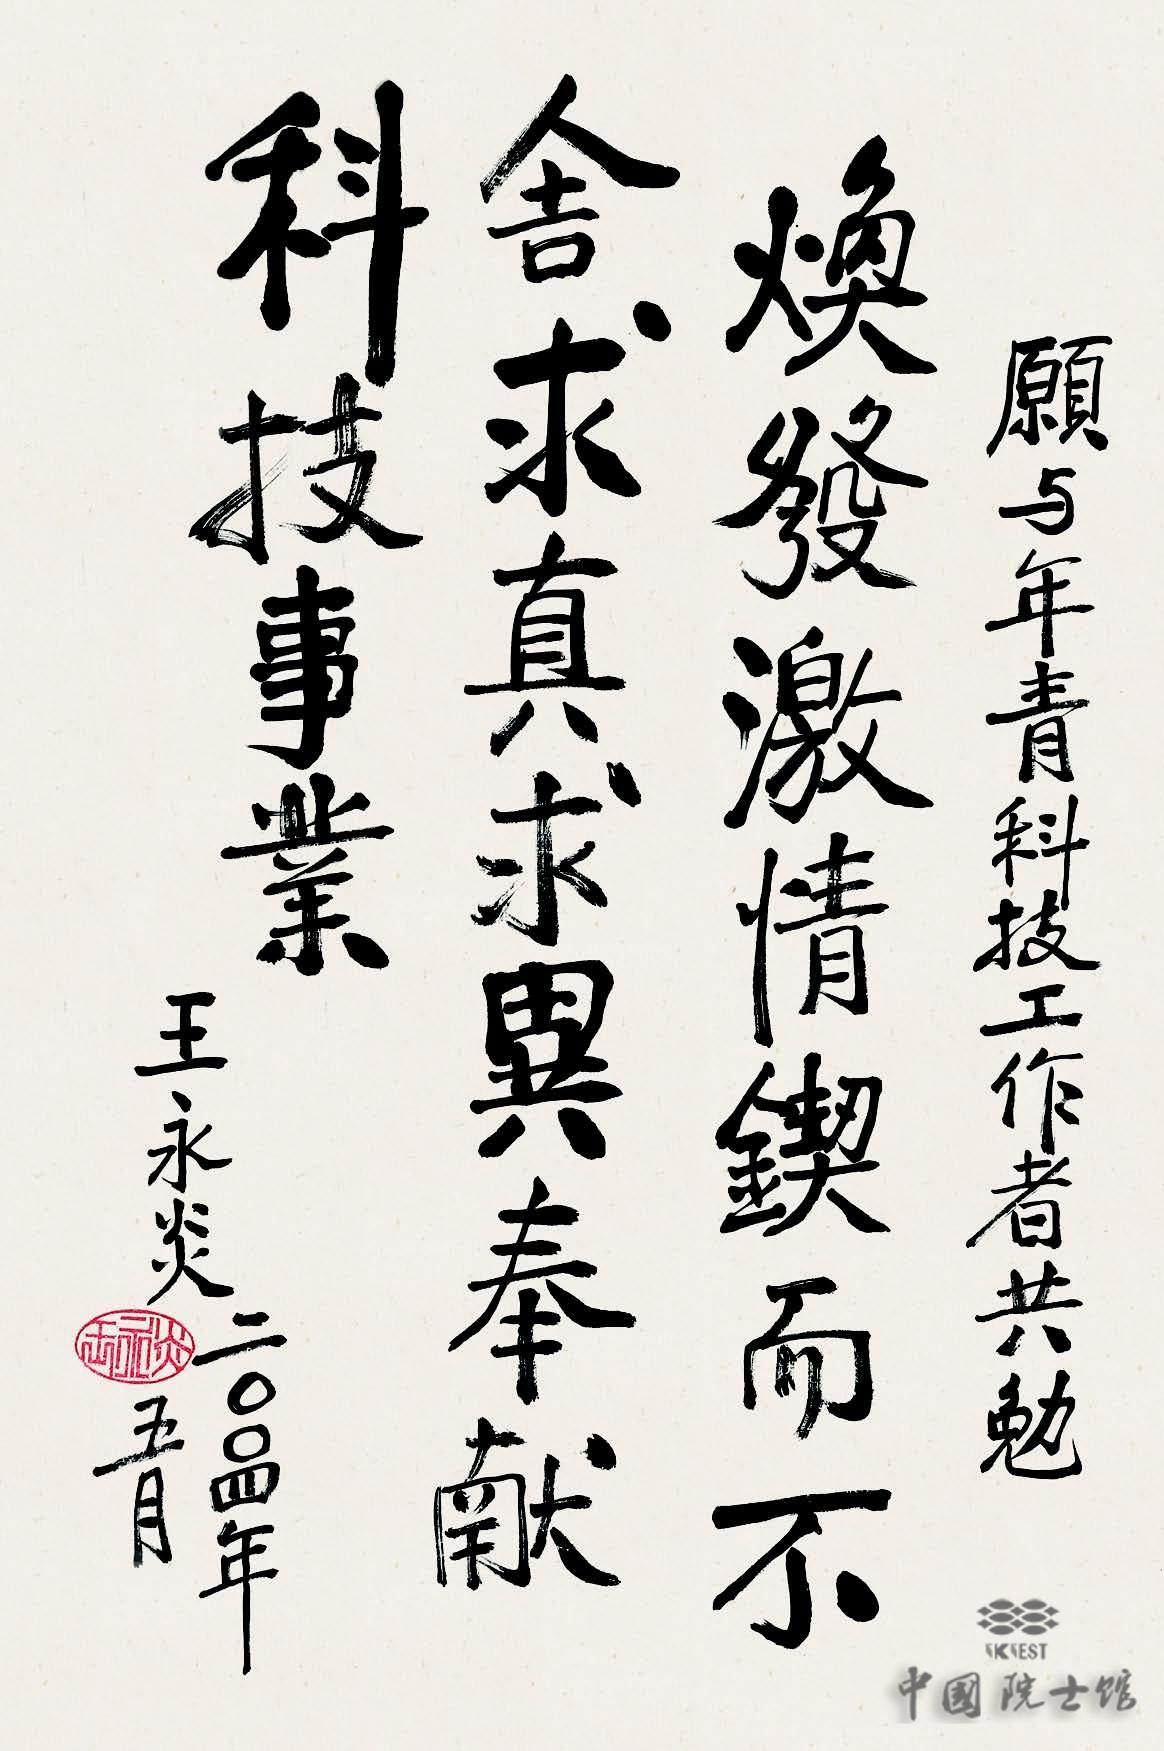 願与年青科技工作者共勉
焕發激情鍥而不
舍求真求異奉献
科技事業
王永炎
二〇〇四年
五月
王永炎
IKEST
中國院士馆